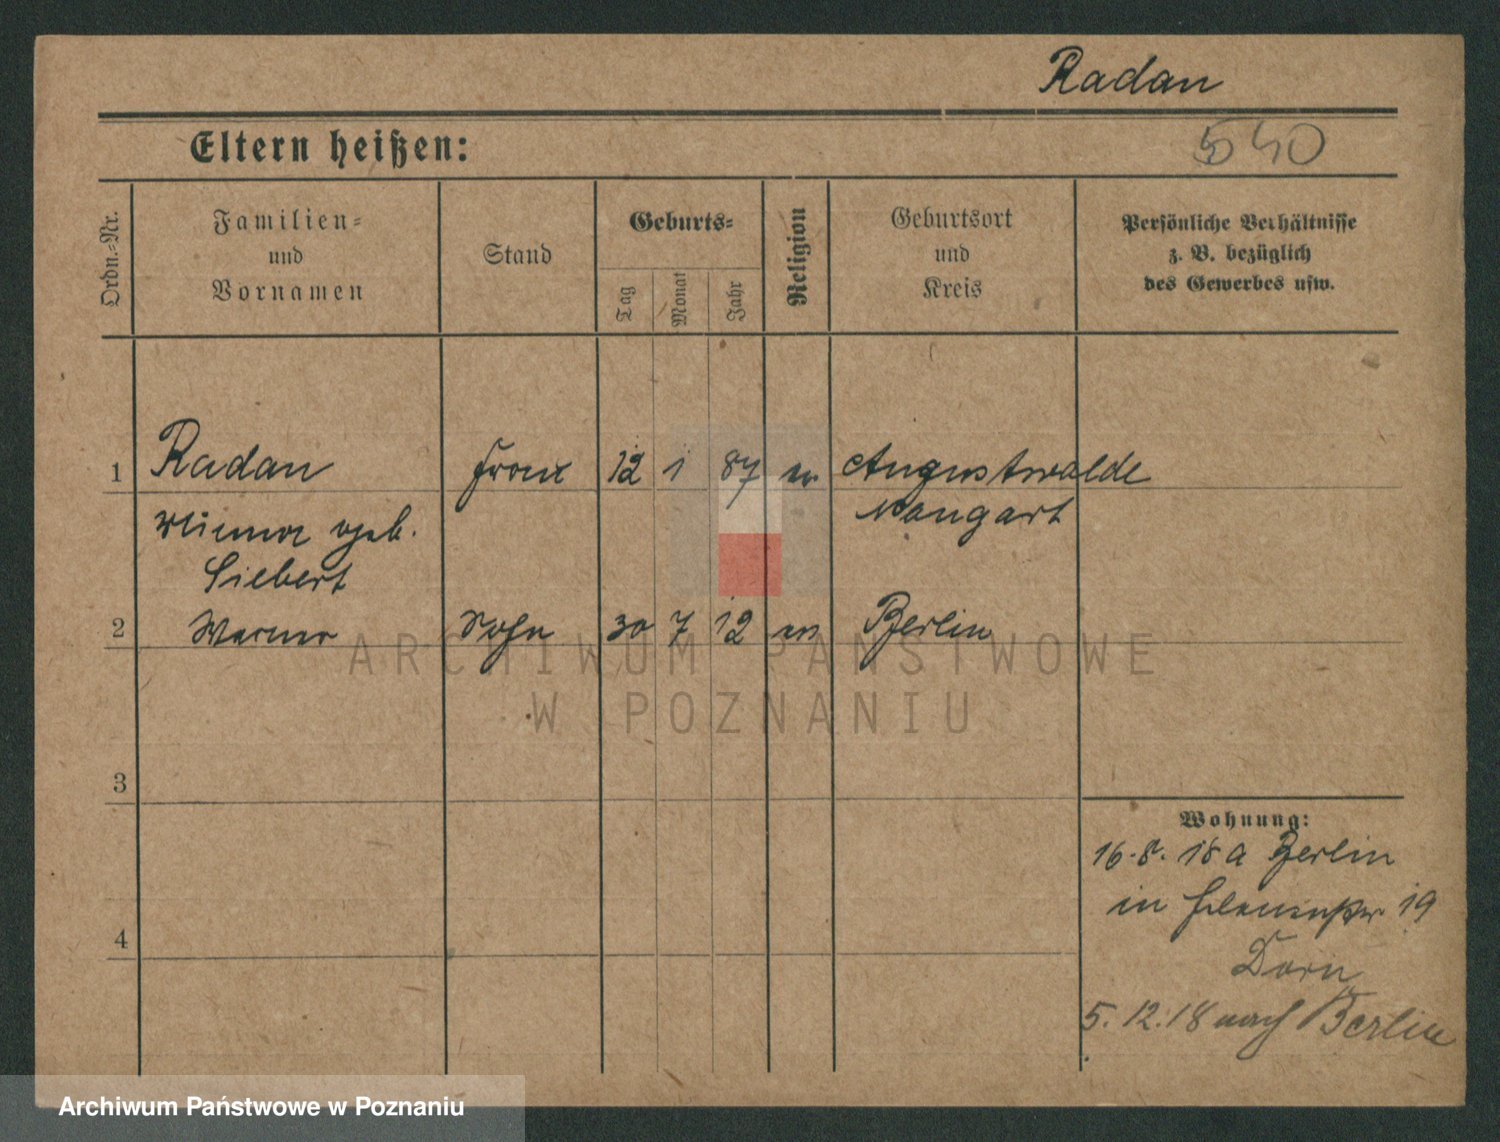 Radan
Eltern heißen:
540
Ordn.-Nr.
Familien-
und
Vornamen
Stand
Geburts-
Tag
Monat
Jahr
Religion
Geburtsort
und
Kreis
Persönliche Verhältnisse
z. B. bezüglich
des Gewerbes usw.
1 Radan Frau 12 1 87 ev Augustwalde
Naugart
Minna geb.
Siebert
2 Werner Sohn 30 7 12 ev Berlin
3
4
Wohnung:
16.8.18 a Berlin
in 19
Dorn
5.12.18 nach Berlin
ARCHIWUM PAŃSTWOWE
W POZNANIU
Archiwum Państwowe w Poznaniu